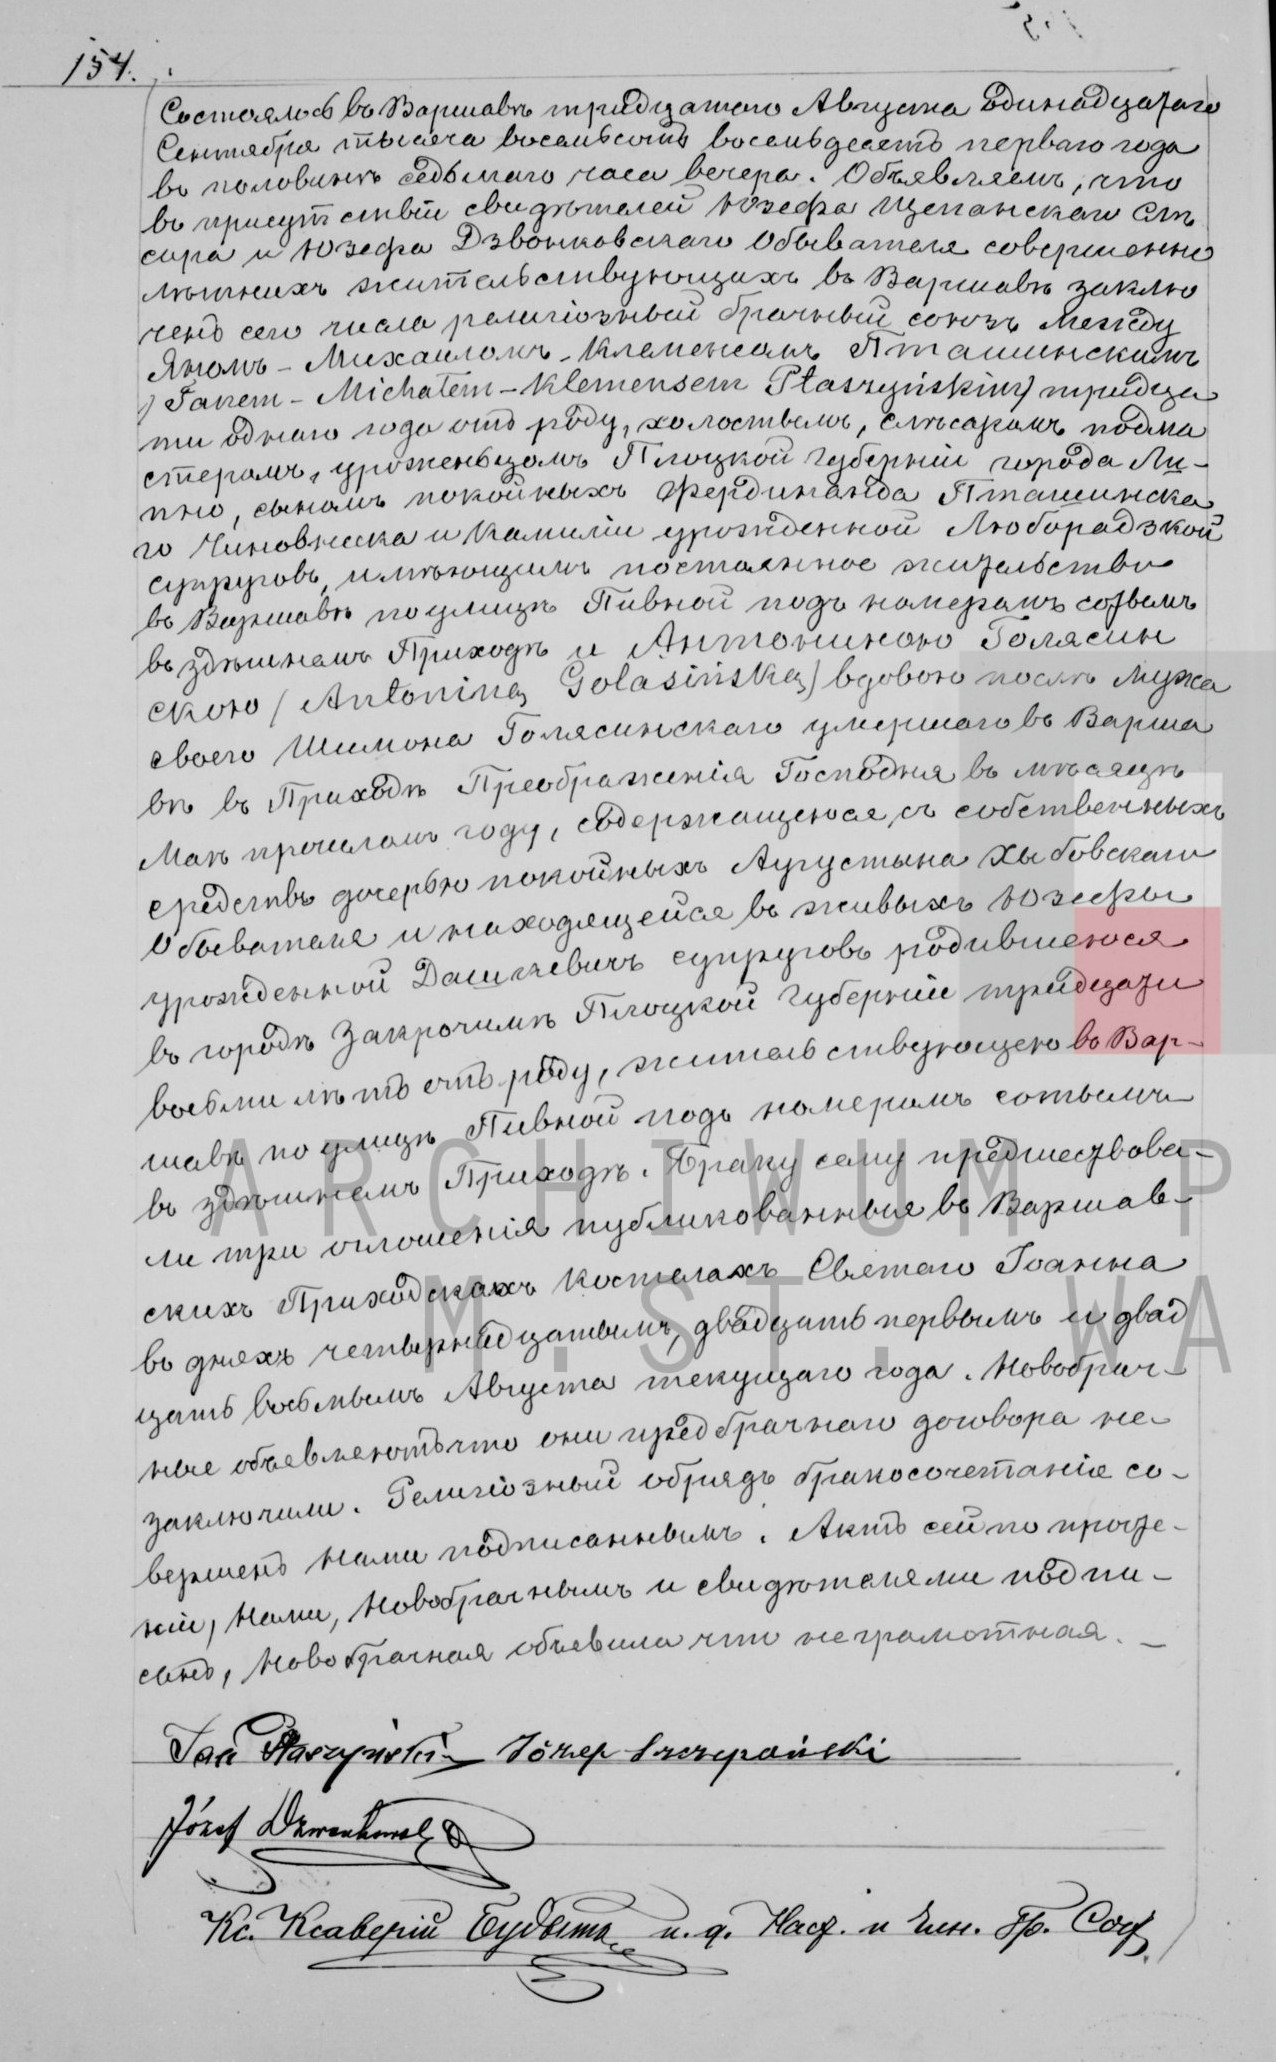 154.
Состоялось въ Варшавѣ тридцатаго Августа Одинадцатаго
Сентября тысяча восемьсотъ восемьдесятъ перваго года
въ половинѣ седьмаго часа вечера. Объявляемъ, что
въ присутствіи свидѣтелей Юзефа Щепанскаго Слѣ
сара и Юзефа Дзвонковскаго Обывателя совершенно
лѣтнихъ жительствующихъ въ Варшавѣ заклю
ченъ сего числа религіозный брачный союзъ между
Яномъ-Михаиломъ-Клеменсомъ Пташинскимъ
/Janem-Michałem-Klemensem Ptaszyńskim/ тридца
ти однаго года отъ роду, холостымъ, слѣсаромъ подма
стеромъ, уроженьцомъ Плоцкой Губерніи города Ли-
пно, сыномъ покойныхъ Фердинанда Пташинска
го Чиновника и Камиліи урожденной Люборадзкой
супруговъ, имѣющимъ постоянное жительство
въ Варшавѣ по улицѣ Пивной подъ номеромъ сотымъ
въ здѣшнемъ Приходѣ и Антониною Голясин
скою /Antoniną Golasińską/ вдовою послѣ мужа
своего Шимона Голясинскаго умершаго въ Варша
вѣ въ Приходѣ Преображенія Господня въ мѣсяцѣ
Маѣ прошломъ году, содержащеюся съ собственныхъ
средствъ дочерью покойныхъ Аугустына Хыбовскаго
Обывателя и находящейся въ живыхъ Юзефы
урожденной Дашкевичъ супруговъ родившеюся
въ городѣ Закрочимѣ Плоцкой Губерніи тридцати
восьми лѣтъ отъ роду, жительствующею въ Вар-
шавѣ по улицѣ Пивной подъ номеромъ сотымъ
въ здѣшнемъ Приходѣ. Браку сему предшествова-
ли три оглошенія публикованныя въ Варшав-
скихъ Приходскахъ Костелахъ Святаго Іоанна
въ дняхъ четырнадцатымъ, двадцать первымъ и двад
цать восьмымъ Августа текущаго года. Новобрач-
ные объевляютъ что они предбрачнаго договора не
заключили. Религіозный обрядъ бракосочетанія со-
вершенъ Нами подписаннымъ. Актъ сей по прочте-
ніи, Нами, Новобрачнымъ и свидѣтелями подпи-
санъ, Новобрачная объявила что неграмотная. -
Jan Ptaszyński Józef Szczepański
Józef Dzwonkowski
Кс. Ксаверій Будытъ и. д. Наст. и Чин. Гр. Сост.
ARCHIWUM P
M. ST. WA